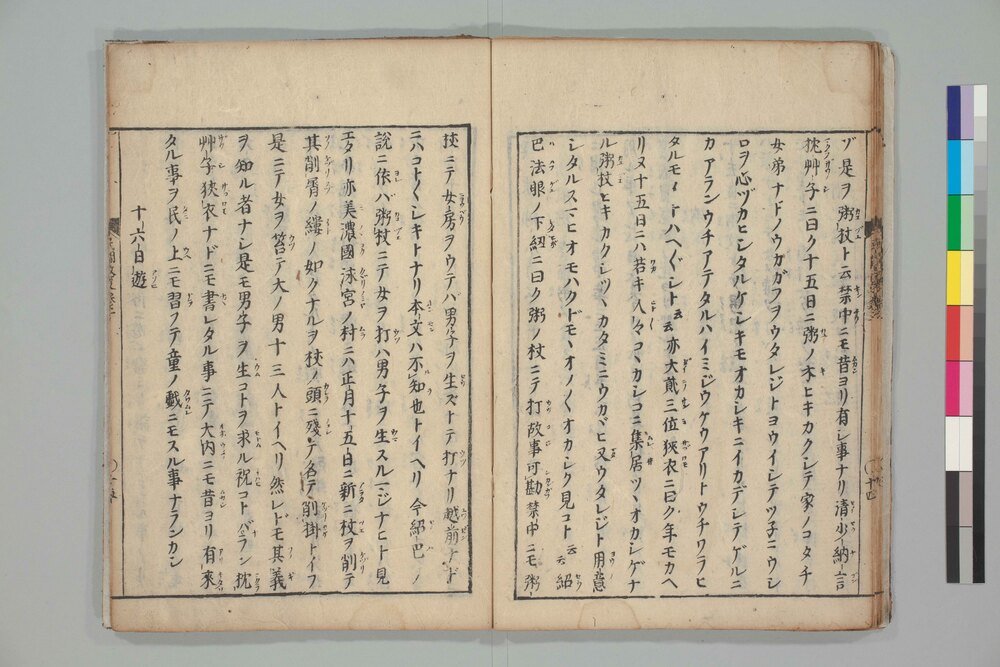 ゾ是ヲ粥杖ト云禁中ニモ昔ヨリ有シ事ナリ清少納言
枕艸子ニ曰ク十五日ニ粥ノ木ヒキカクシテ家ノコタチ
女弟ナドノウカガフヲウタレジトヨウイシテツ子ニウシ
ロヲ心ヅカヒシタルケシキモオカシキニイカデシテゲルニ
カアランウチアテタルハイミジウケウアリトウチワラヒ
タルモ云云亦大貳三位狹衣ニ曰ク年モカヘ
リヌ十五日ニハ若キ人々コヽカシコニ集居ツヽオカシゲナ
ル粥杖ヒキカクシツヽカタミニウカヾヒ又ウタレジト用意
シタルスマヒオモハクドモヽオノ〱オカシク見コト云云紹
巴法眼ノ下紐ニ曰ク粥ノ杖ニテ打故事可勘禁中ニモ粥
杖ニテ女房ヲウテバ男子ヲ生ズトテ打ナリ越前ナド
ニハコト〱シキトナリ本文ハ不知也トイヘリ今紹巴ノ
説ニ依バ粥杖ニテ女ヲ打ハ男子ヲ生スルマジナヒト見
エタリ亦美濃國洙宮ノ村ニハ正月十五日ニ新ニ杖ヲ削テ
其削屑ノ縷ノ如クナルヲ杖ノ頭ニ殘シテ名テ削掛トイフ
是ニテ女ヲ笞テ大ノ男十三人トイヘリ然レドモ其義
ヲ知ル者ナシ是モ男子ヲ生コトヲ求ル祝コトバナラン枕
艸子狹衣ナドニモ書レタル事ニテ大内ニモ昔ヨリ有來
タル事ヲ民ノ上ニモ習フテ童ノ戲ニモスル事ナランカシ
十六日遊